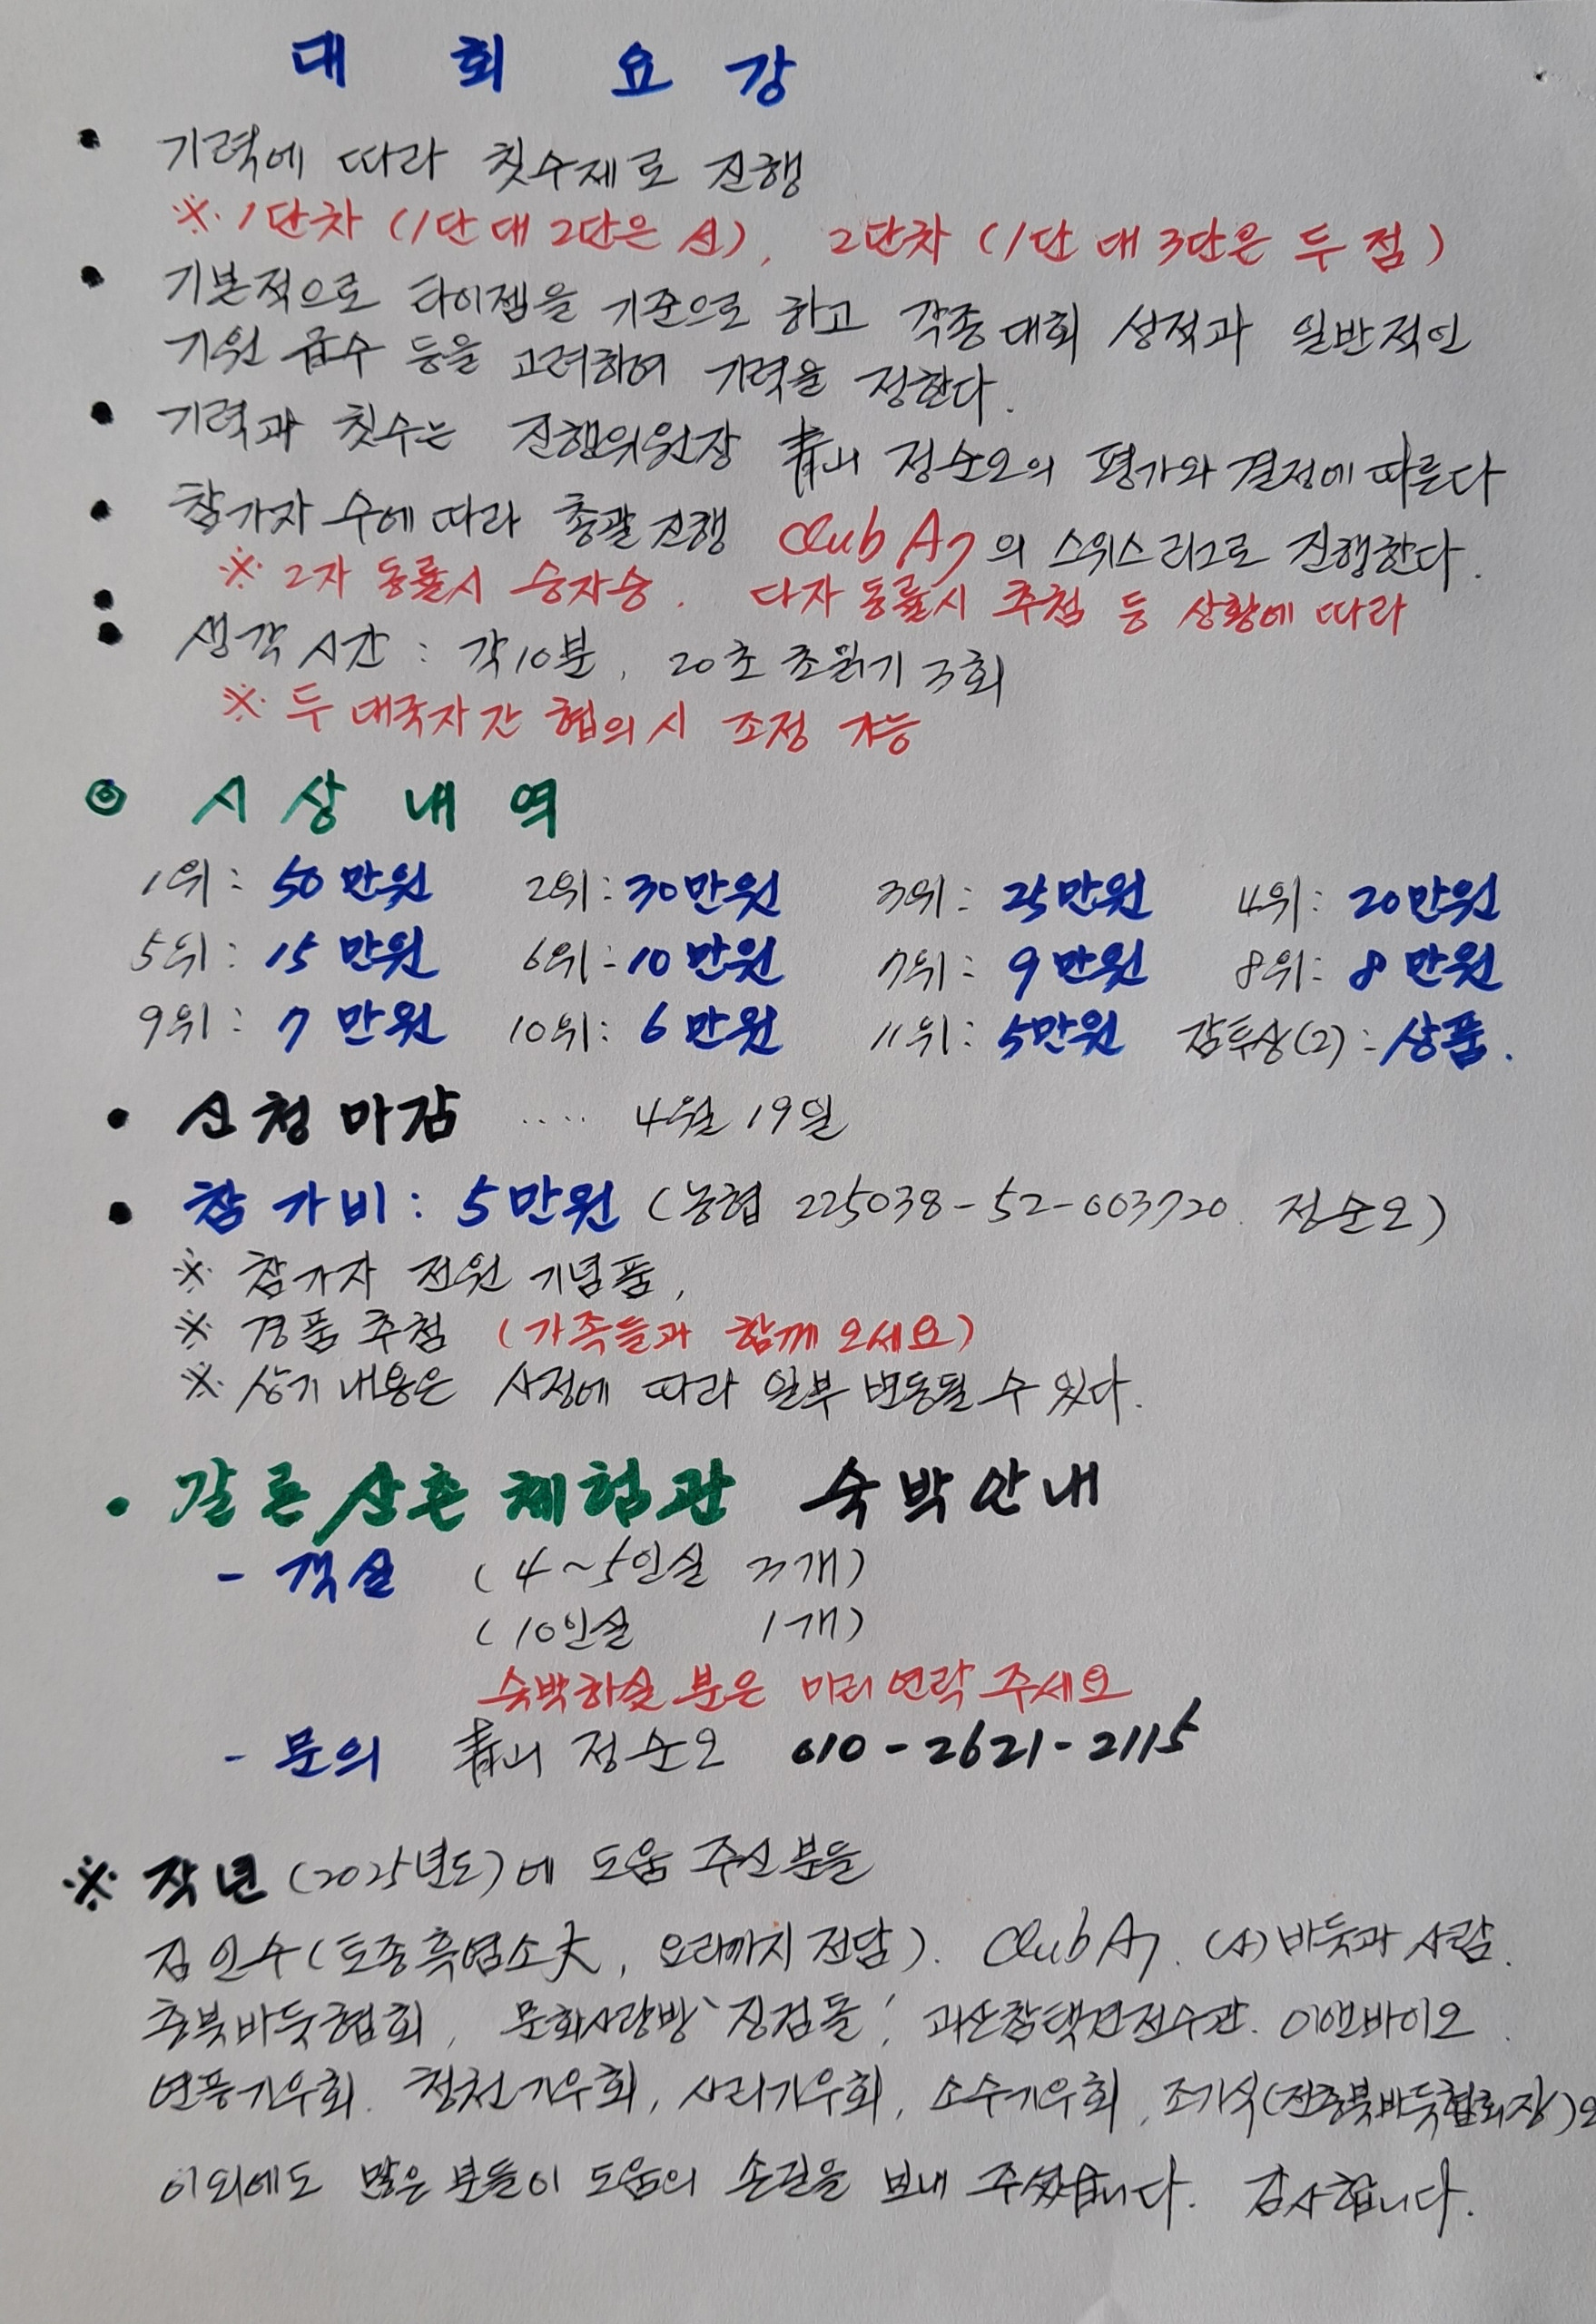 대 회 요 강
• 기력에 따라 칫수제로 진행
※ 1단차 (1단 대 2단은 선), 2단차 (1단 대 3단은 두 점)
• 기본적으로 타이젬을 기준으로 하고 각종대회 성적과 일반적인
기원 급수 등을 고려하여 기력을 정한다.
• 기력과 칫수는 진행위원장 靑山 정순오의 평가와 결정에 따른다
• 참가자 수에 따라 총괄진행 club A7의 스위스리그로 진행한다.
• ※ 2자 동률시 승자승. 다자 동률시 추첨 등 상황에 따라
• 생각시간 : 각10분, 20초 초읽기 3회
※ 두 대국자간 협의시 조정 가능
◎ 시 상 내 역
1위 : 50만원 2위 : 30만원 3위 : 25만원 4위 : 20만원
5위 : 15만원 6위 : 10만원 7위 : 9만원 8위 : 8만원
9위 : 7만원 10위 : 6만원 11위 : 5만원 감투상(2) : 상품.
• 신청마감 .... 4월 19일
• 참가비 : 5만원 (농협 225038-52-003720. 정순오)
※ 참가자 전원 기념품,
※ 경품추첨 (가족들과 함께 오세요)
※ 상기내용은 사정에 따라 일부 변동될 수 있다.
• 갈론산촌체험관 숙박안내
- 객실 (4~5인실 3개)
(10인실 1개)
숙박하실 분은 미리 연락 주세요
- 문의 靑山 정순오 010-2621-2115
※ 작년(2025년도)에 도움 주신분들
김인수(토종흑염소大, 요리까지 전담). club A7. (사)바둑과 사람.
충북바둑협회, 문화사랑방 '징검돌', 괴산참택견전수관. 이앤바이오.
연풍기우회. 청천기우회, 사리기우회, 소수기우회, 조기식(전충북바둑협회장)외
이외에도 많은 분들이 도움의 손길을 보내 주셨습니다. 감사합니다.